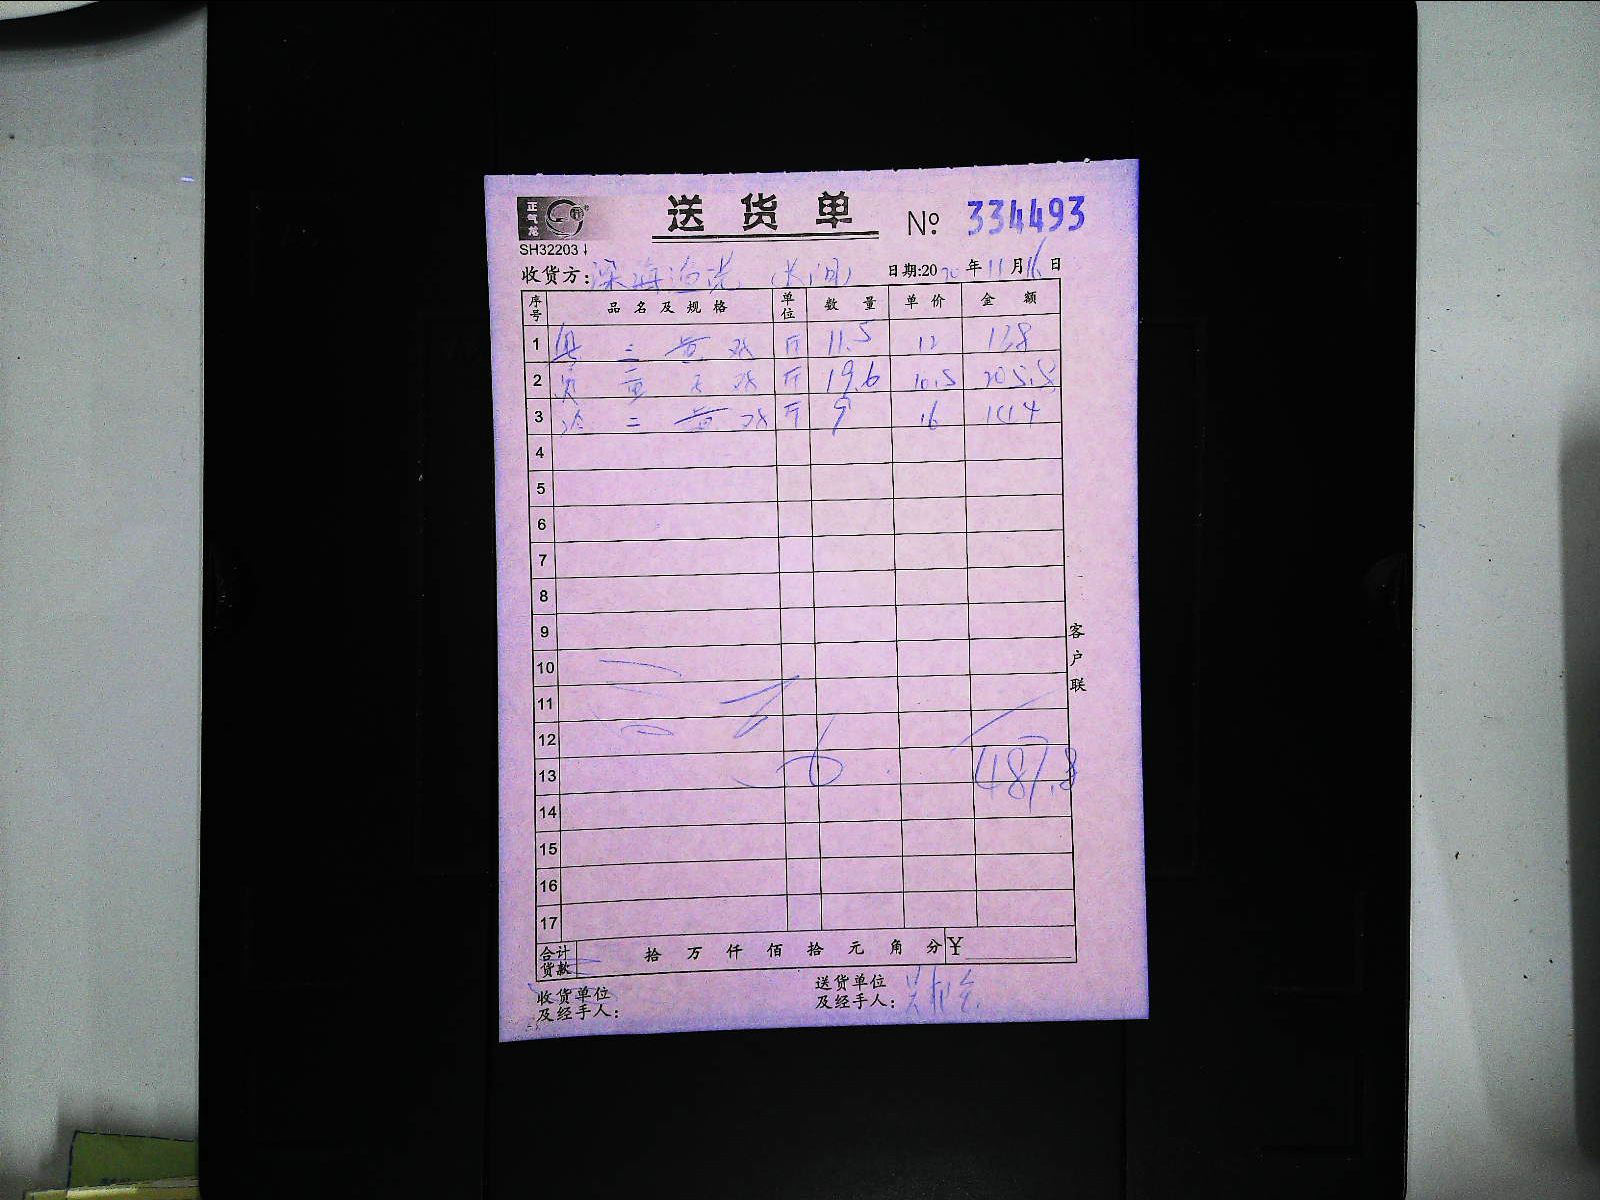 正气龙
送货单 No: 334493
SH32203↓
收货方: 深海 日期:2020年11月16日
序号 品名及规格 单位 数量 单价 金额
1 三黄鸡 斤 11.5 12 138
2 斤 19.6 10.5 205.8
3 三黄鸡 斤 9 16 144
4
5
6
7
8
9
10
11
12
13 487.8
14
15
16
17
客户联
合计货款 拾 万 仟 佰 拾 元 角 分 ¥
收货单位及经手人: 送货单位及经手人: